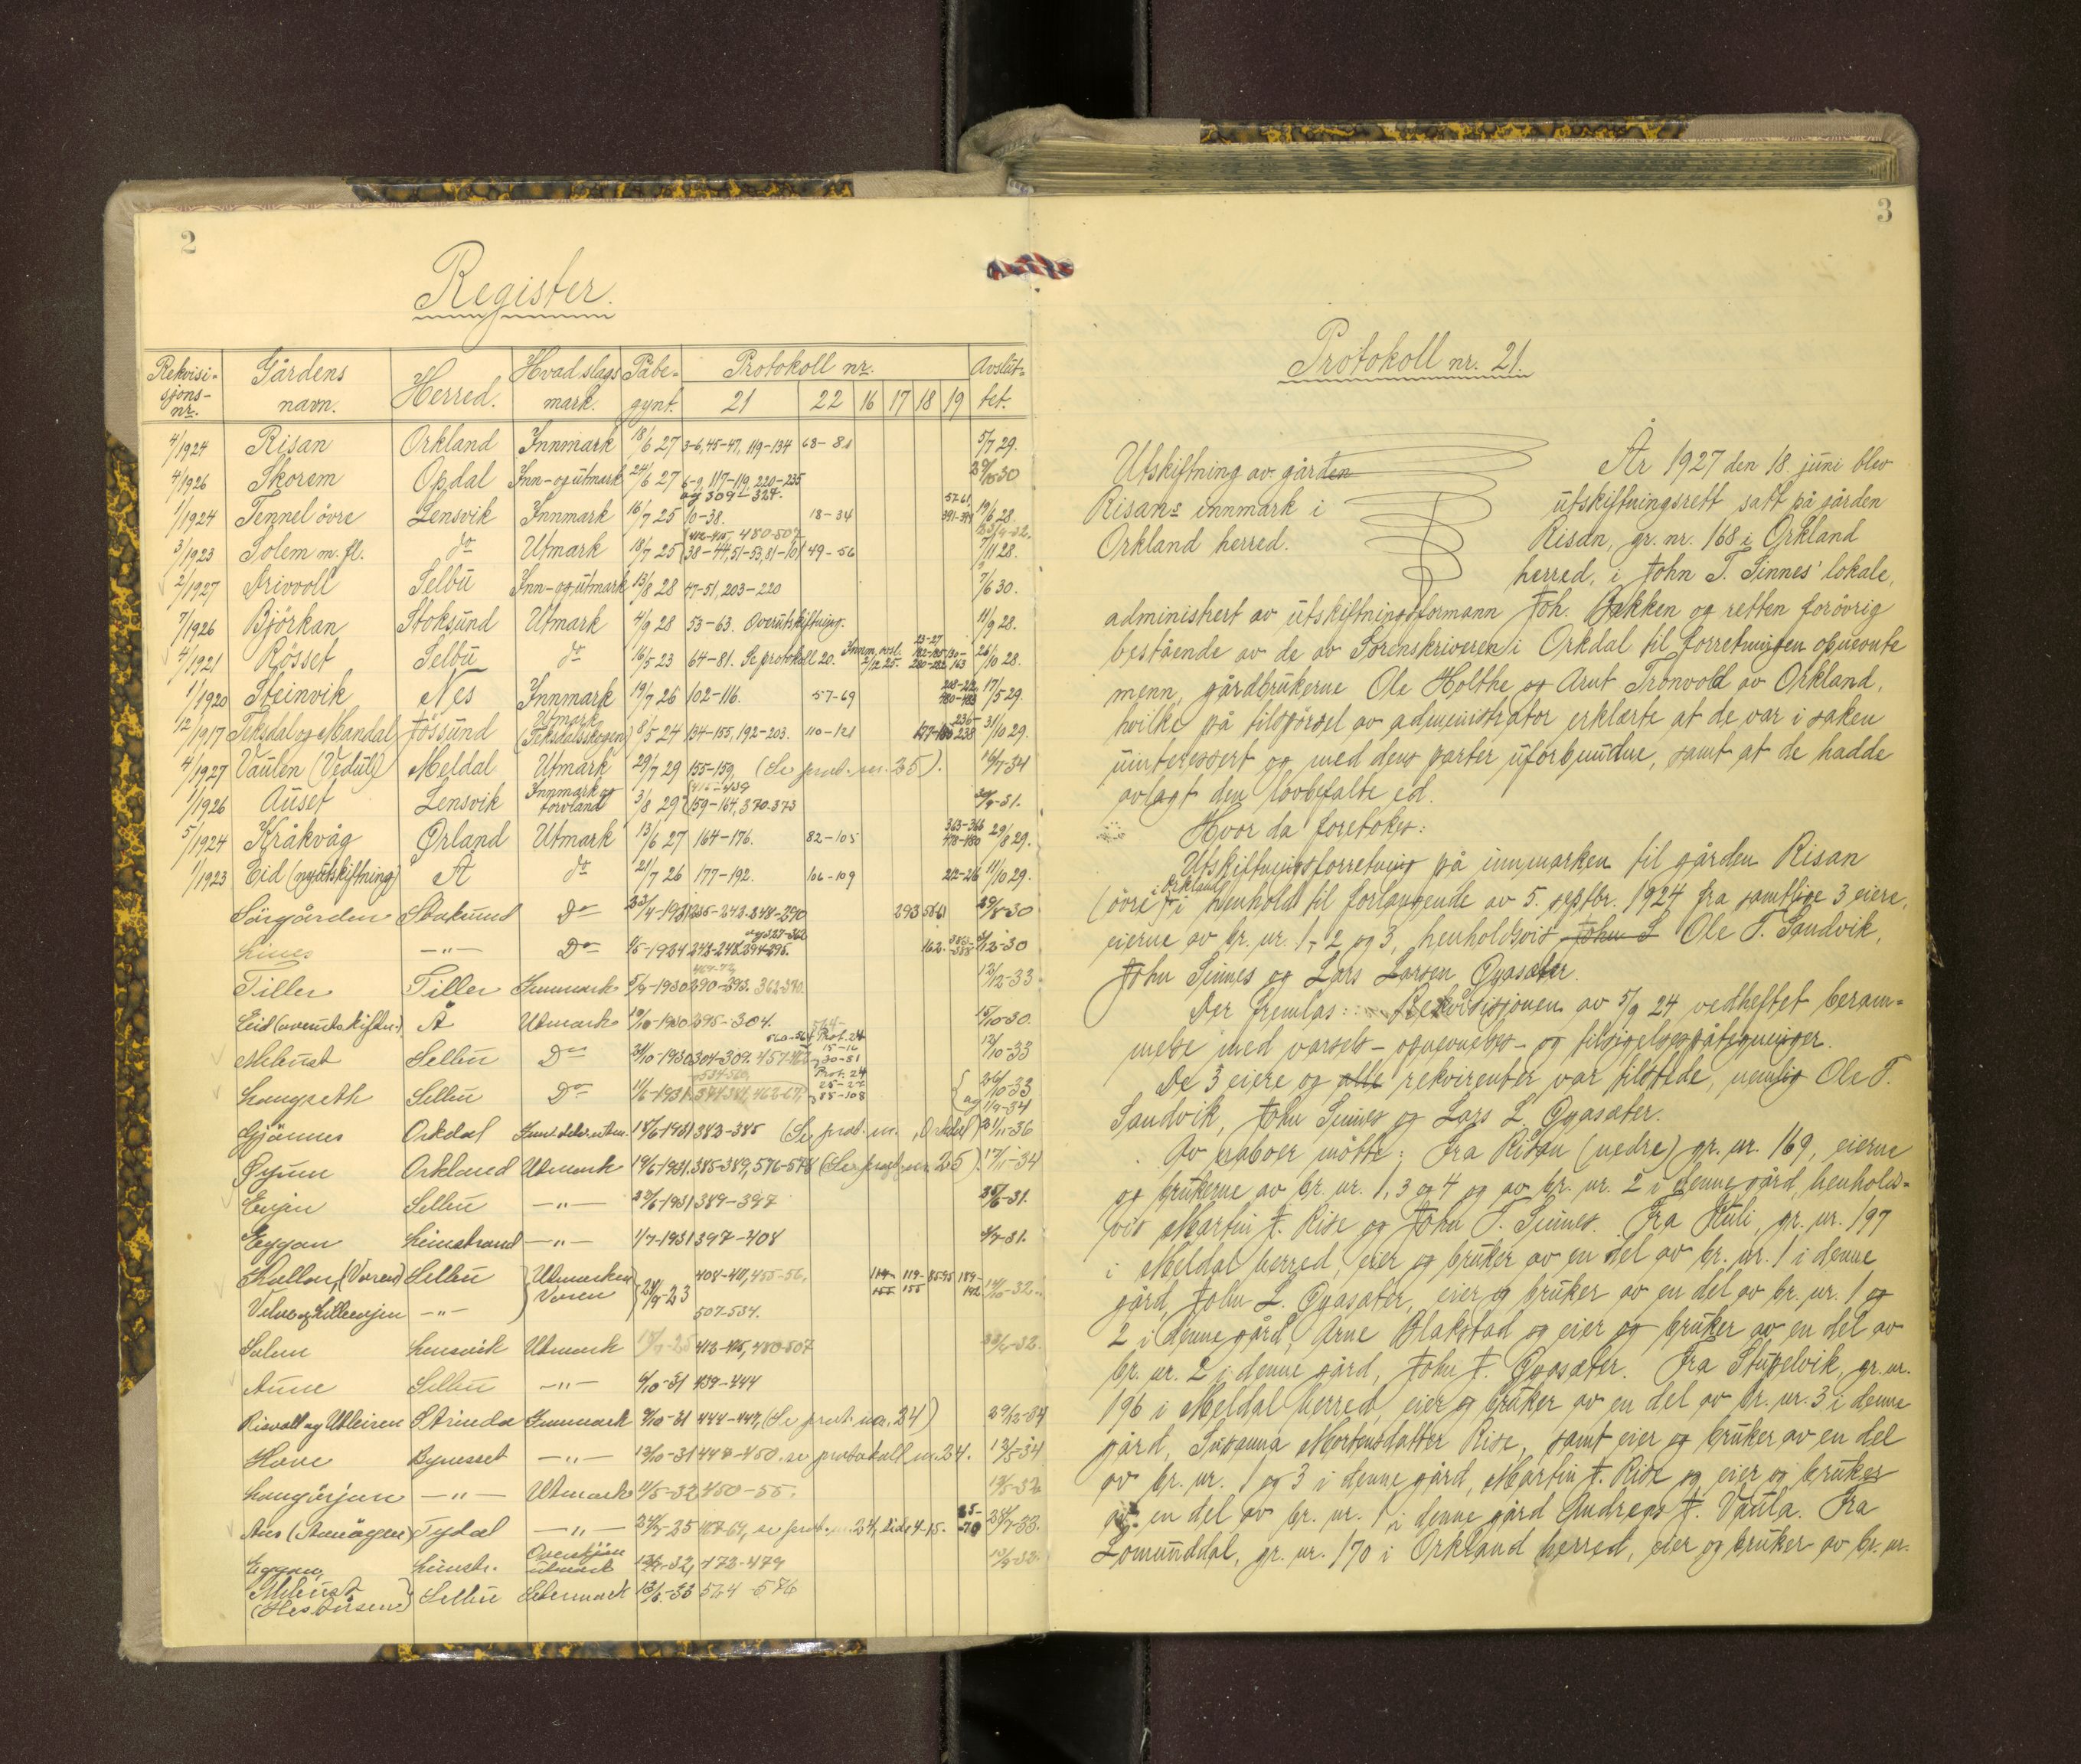 2
Register.
Rekvisi-sjons-nr. Gårdens navn. Herred. Hvad slags mark. Påbe-gynt. Protokoll nr. 21 22 16 17 18 19 Avslut-tet.
4/1924 Risan Orkland Innmark 18/6 27 3-6, 45-47, 119-134 68-81 5/7 29.
4/1926 Skorem Opdal Inn- og utmark 24/6 27 6-9, 117-119, 220-235 og 309-324. 30
1/1924 Tennel övre Lensvik Innmark 16/7 25 10-38. 18-34 57-61 391-394 19/6 28.
3/1923 Solem m. fl. do Utmark 18/7 25 38-44, 51-53, 81-101 412-415, 480-507 49-56 7/11 28.
2/1927 Arivoll Selbu Inn- og utmark 13/8 28 47-51, 203-220 7/6 30.
7/1926 Björkan Stoksund Utmark 4/9 28 53-63. Overutskiftning. 11/9 28.
4/1921 Rösset Selbu do 16/5 23 64-81. Se protokoll 20. 26/10 28.
1/1920 Steinvik Nes Innmark 19/7 26 102-116. 57-69 17/5 29.
12/1917 Teksdal og Mandal Jössund Utmark (Teksdalsskogen) 8/5 24 134-155, 192-203. 110-121 236-238 31/10 29.
4/1927 Vaulen (Vedul) Meldal Utmark 29/7 29 155-159, (Se prot. nr. 25). 16/7-34
1/1926 Auset Lensvik Innmark og torvland 3/8 29 159-164, 370-373 -31.
5/1924 Kråkvåg Ørland Utmark 13/6 27 164-176. 82-105 363-366 478-480 29/8 29.
1/1923 Eid (nyutskiftning) Å do 21/7 26 177-192. 106-109 22-26 11/10 29.
Sörgården Stoksund Do 23/4-1931 235-243. 248-290 293 29/8-30
Lines -"- Do 1/5-1924 243-248. 294-295. og 327-362 162. -30
Tiller Tiller Innmark 5/7-1930 290-293. 362-370. 12/12-33
Eid (overutskiftn.) Å Utmark 10/10-1930 295-304. 15/10-30.
Melhust Selbu Do 24/10-1930 304-309. 457-462 560-564 Prot. 24 15-16 30-81 12/10-33
Langseth Selbu Do 11/6-1931 374-381, 462-67, Prot. 24 25-27 85-108 26/10-33 og 1/9-34
Gjönnes Orkdal 18/6-1931 383-385 (Se prot. nr. Orkdal) -36
Öyum Orkland Utmark 19/6-1931 385-389, 576-578 (Se prot. nr. 25). 17/11-34
Evjen Selbu -"- 22/6-1931 389-397 25/6-31.
Eggan Leinstrand -"- 1/7-1931 397-408 4/7-31.
Kallar (Voren) Selbu Utmarken Voren 24/9-23 408-411, 455-56, -32.
-"- 507-534.
Solem Lensvik Utmark 412-415, 480-507 -32.
Aune Selbu -"- 6/10-31 439-444
Risvoll og Utleiren Strinda Innmark 9/10-31 444-447, (Se prot. nr. 24) 29/12-34
Hove Bynesset -"- 13/10-31 447-450. se protokoll nr. 24. 12/5-34
-"- Utmark 11/5-32 450-55. 12/5-32
Aas (Aasögen) Tydal -"- 467-69, se prot. nr. 24, side 4-15. -33.
Eggan Leinstr. utmark -32 473-479 -32.
Melhust Selbu -33 564-576
3
Protokoll nr. 21.
Utskiftning av gården
Risans innmark i
Orkland herred.
År 1927 den 18. juni blev
utskiftningsrett satt på gården
Risan, gr. nr. 168 i Orkland
herred, i John T. Sinnes' lokale,
administrert av utskiftningsformann Joh. Bakken og retten forövrig
bestående av de av Sorenskriveren i Orkdal til forretningen opnevnte
menn, gårdbrukerne Ole Holthe og Arnt Tronvold av Orkland,
hvilke på tilspörsel av administrator erklærte at de var i saken
uinteressert og med dens parter uforbundne, samt at de hadde
avlagt den lovbefalte ed.
Hvor da foretokes:
Utskiftningsforretning på innmarken til gården Risan
(övre) i Orkland i henhold til forlangende av 5. septbr. 1924 fra samtlige 3 eiere,
eierne av br. nr. 1, 2 og 3, henholdsvis John S Ole T. Sandvik,
John Sinnes og Lars Larsen Ogasæter.
Der fremlas: Rekvisisjonen av 5/9 24 vedheftet beram-
melse med varsels- opnevnelses- og tilsigelsespåtegninger.
De 3 eiere og alle rekvirenter var tilstede, nemlig Ole T.
Sandvik, John Sinnes og Lars L. Ogasæter.
Av naboer mötte: Fra Risan (nedre) gr. nr. 169, eierne
og brukerne av br. nr. 1, 3 og 4 og av br. nr. 2 i denne gård, henholds-
vis Martin J. Rise og John T. Sinnes. Fra Huli, gr. nr. 197
i Meldal herred, eier og bruker av en del av br. nr. 1 i denne
gård, John L. Ogasæter, eier og bruker av en del av br. nr. 1 og
2 i denne gård, Arne Blakstad og eier og bruker av en del av
br. nr. 2 i denne gård, John J. Ogasæter. Fra Stupelvik, gr. nr.
196 i Meldal herred, eier og bruker av en del av br. nr. 3 i denne
gård, Susanna Mortensdatter Rise, samt eier og bruker av en del
av br. nr. 1 og 3 i denne gård, Martin J. Rise og eier og bruker
av en del av br. nr. 1 i denne gård Andreas J. Vaula. Fra
Lomunddal, gr. nr. 170 i Orkland herred, eier og bruker av br. nr.